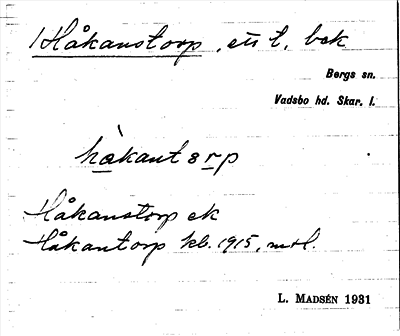 Håkanstorp, ett t, bek
Bergs sn.
Vadsbo hd. Skar. l.
hàkant s r p
Håkanstorp ek
Håkantorp kb. 1915, mtl.
L. MADSÉN 1931